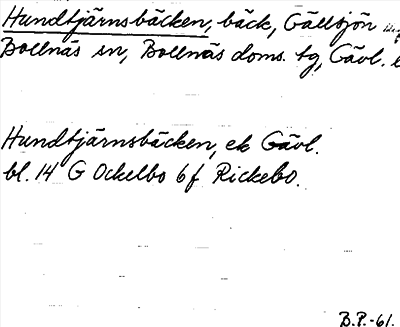 Hundtjärnsbäcken, bäck, Gällsjön
Bollnäs sn, Bollnäs doms. tg, Gävl. l
Hundtjärnsbäcken, ek Gävl.
bl. 14 G Ockelbo 6f Rickebo.
B.P.-61.